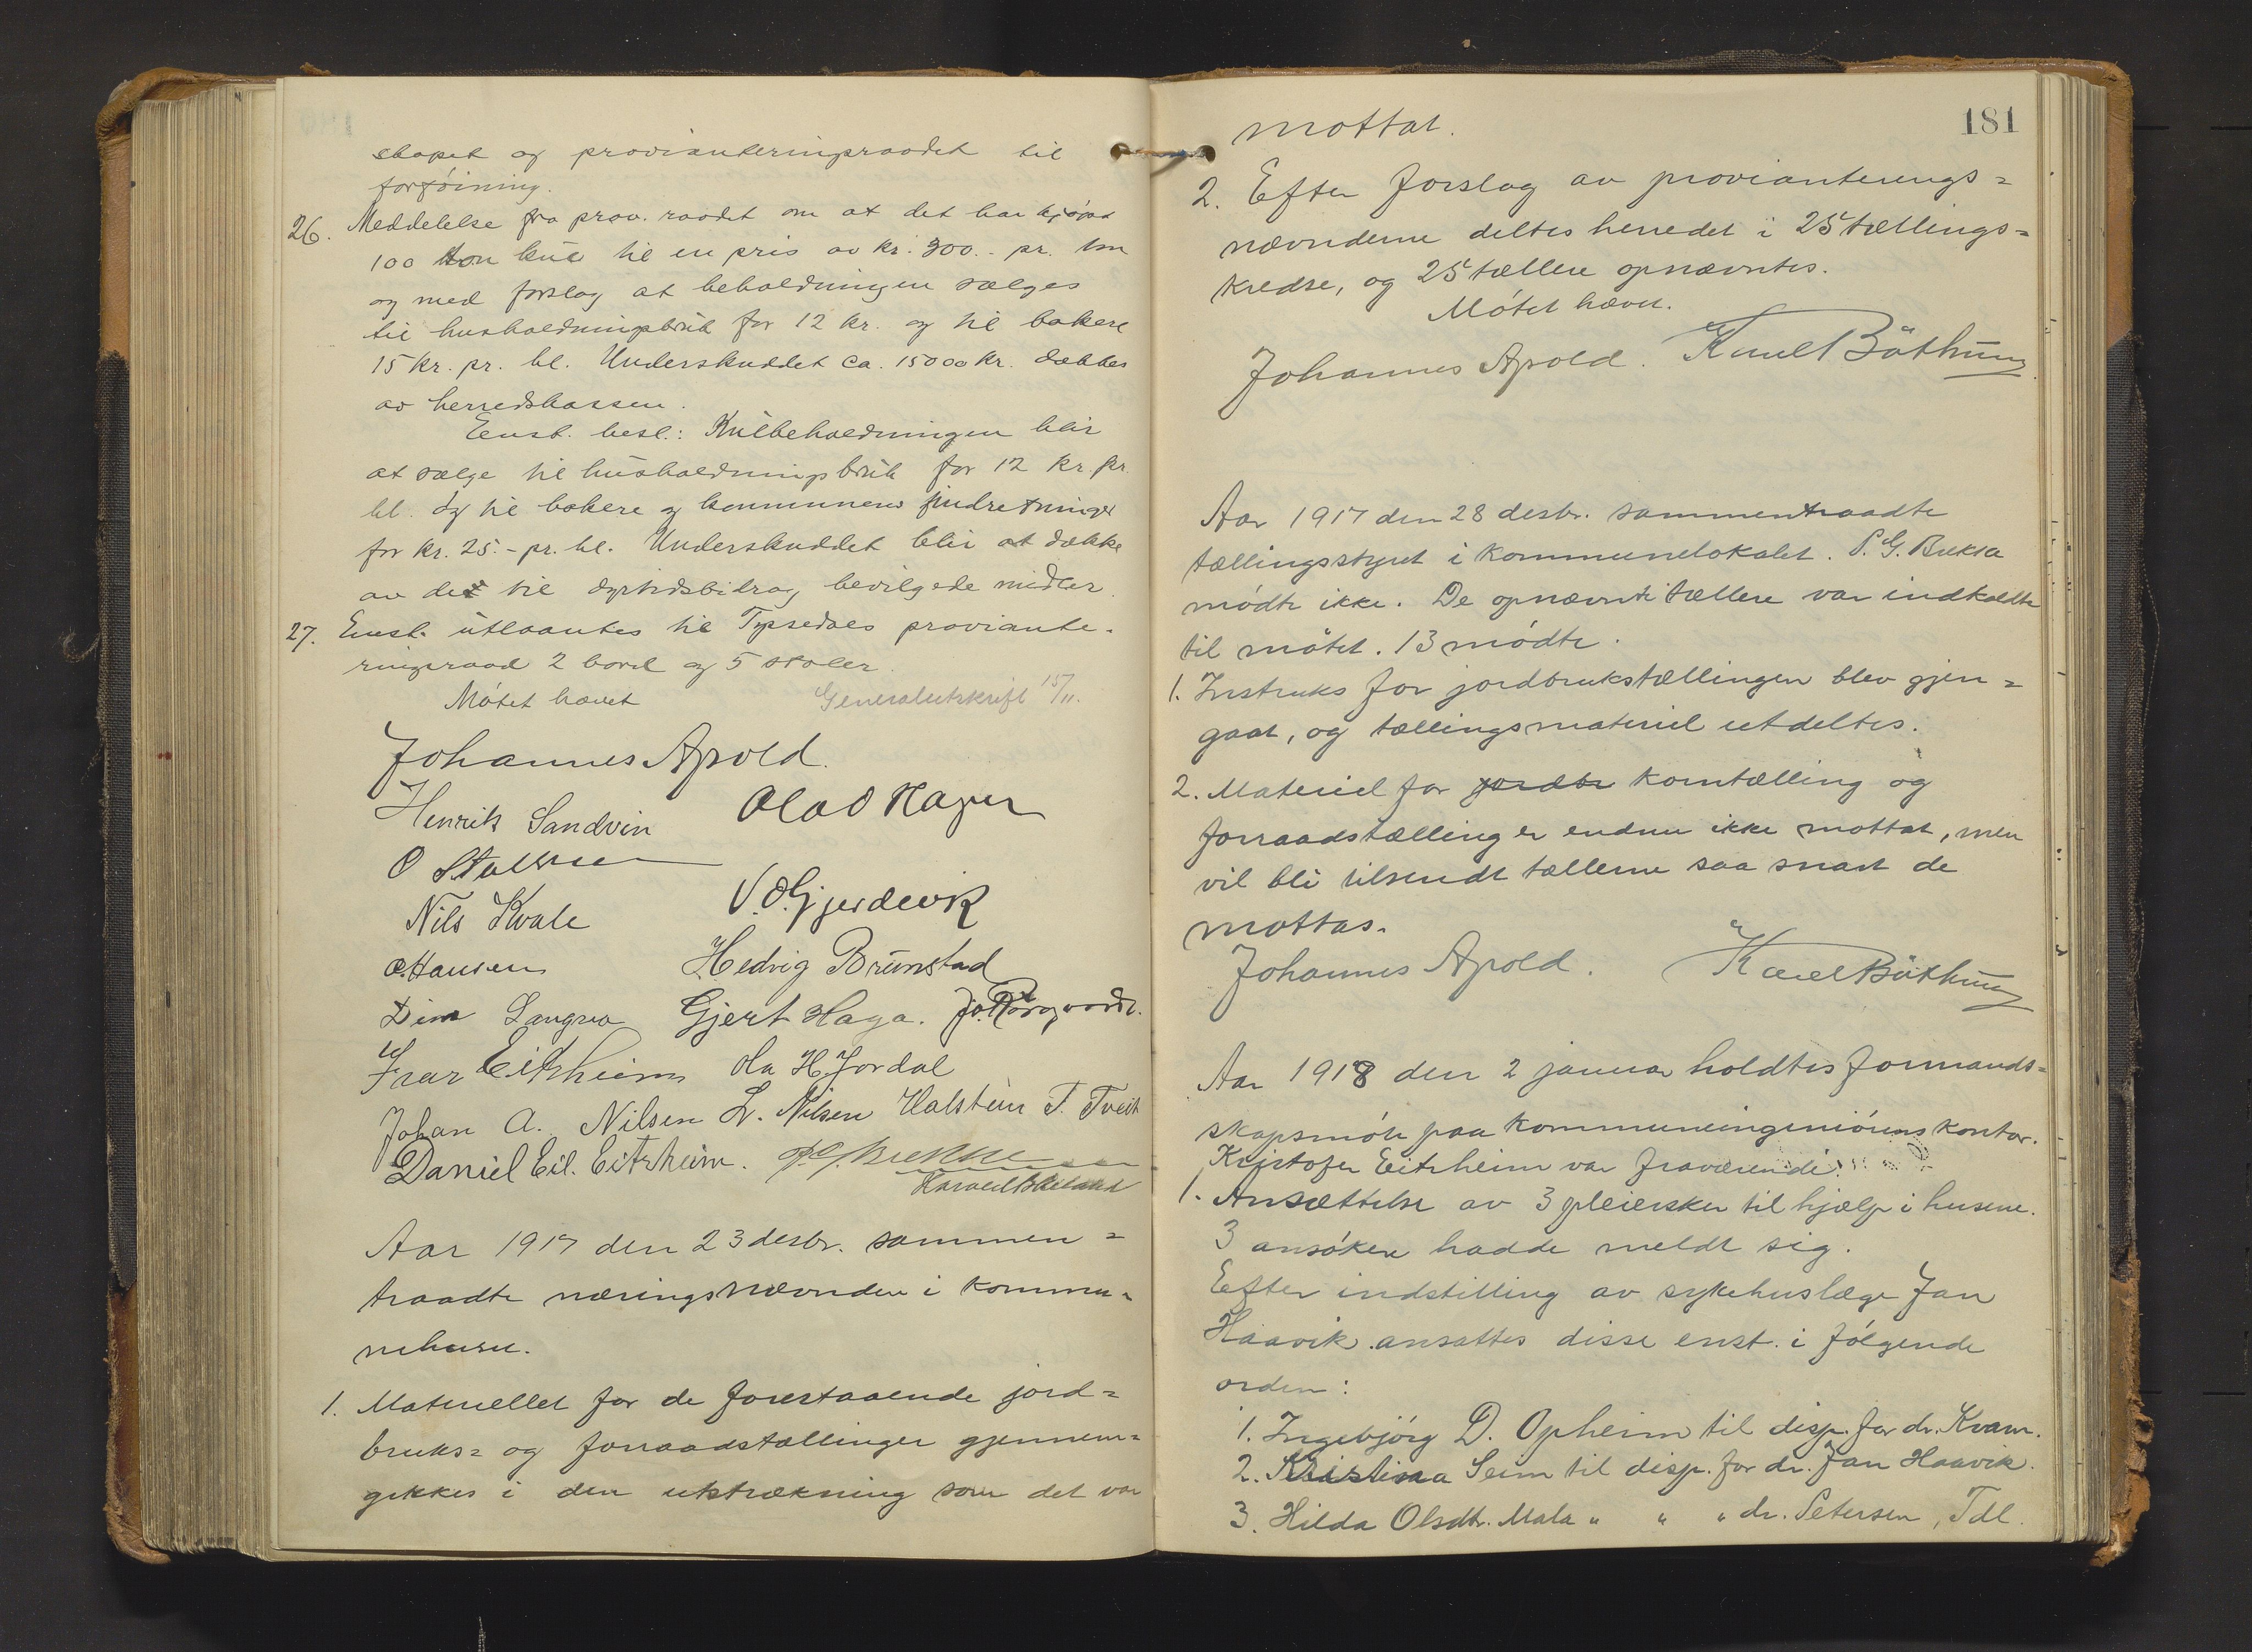 skapet og provianteringsraadet til
forføining.
26. Meddelelse fra prov. raadet om at det har kjøpt
100 ton kul til en pris av kr. 300.- pr. ton
og med forslag at beholdningen sælges
til husholdningsbruk for 12 kr. og til bakere
15 kr. pr. hl. Underskuddet ca. 15000 kr. dækkes
av herredskassen.
Enst. besl.: Kulbeholdningen blir
at sælge til husholdningsbruk for 12 kr. pr.
hl. og til bakere og kommunens indretninger
for kr. 25.- pr. hl. Underskuddet blir at dække
av de til dyrtidsbidrag bevilgede midler.
27. Enst. utlaantes til Tyssedals proviante-
ringsraad 2 bord og 5 stoler.
Møtet hævet
Generalutskrift 15/11.
Johannes Apold.
Henrik Sandvin
Olav O Hagen
O
Nils Kvale
V. O. Gjerdevik
O. Hansen
Hedvig Brunstad
Gjert Haga.
Ivar Eitrheim Ola H. Jordal
Johan A. Nilsen L. Nilsen Halstein T. Tveit
Daniel Eil. Eitrheim.
Aar 1917 den 23 desbr. sammen=
traadte næringsnævnden i kommu-
nehuset.
1. Materiellet for de forestaaende jord=
bruks= og forraadstællinger gjennem=
gikkes i den utstrækning som det var
181
mottat.
2. Efter forslag av provianterings=
nævnderne deltes herredet i 25 tællings=
kredse, og 25 tællere opnævntes.
Møtet hævet.
Johannes Apold. Karel Böthun
Aar 1917 den 28 desbr. sammentraadte
tællingsstyret i kommunelokalet. P. G. Buksa
mødte ikke. De opnævnte tællere var indkaldte
til møtet. 13 mødte.
1. Instruks for jordbrukstællingen blev gjen=
gaat, og tællingsmateriel utdeltes.
2. Materiel for jordbr korntælling og
forraadstælling er endnu ikke mottat, men
vil bli tilsendt tællerne saa snart de
mottas.
Johannes Apold. Karel Böthun
Aar 1918 den 2 januar holdtes formands=
skapsmøte paa kommuneingeniørens kontor.
Kristofer Eitrheim var fraværende.
1. Ansættelse av 3 pleiersker til hjælp i husene.
3 ansøkere hadde meldt sig.
Efter indstilling av sykehuslæge Jan
Haavik ansattes disse enst. i følgende
orden:
1. Ingebjørg D. Opheim til disp. for dr. Kvam.
2. Kristina Seim til disp. for dr. Jan Haavik.
3. Hilda Olsdtr. Mala " " " dr. Petersen, Tdl.